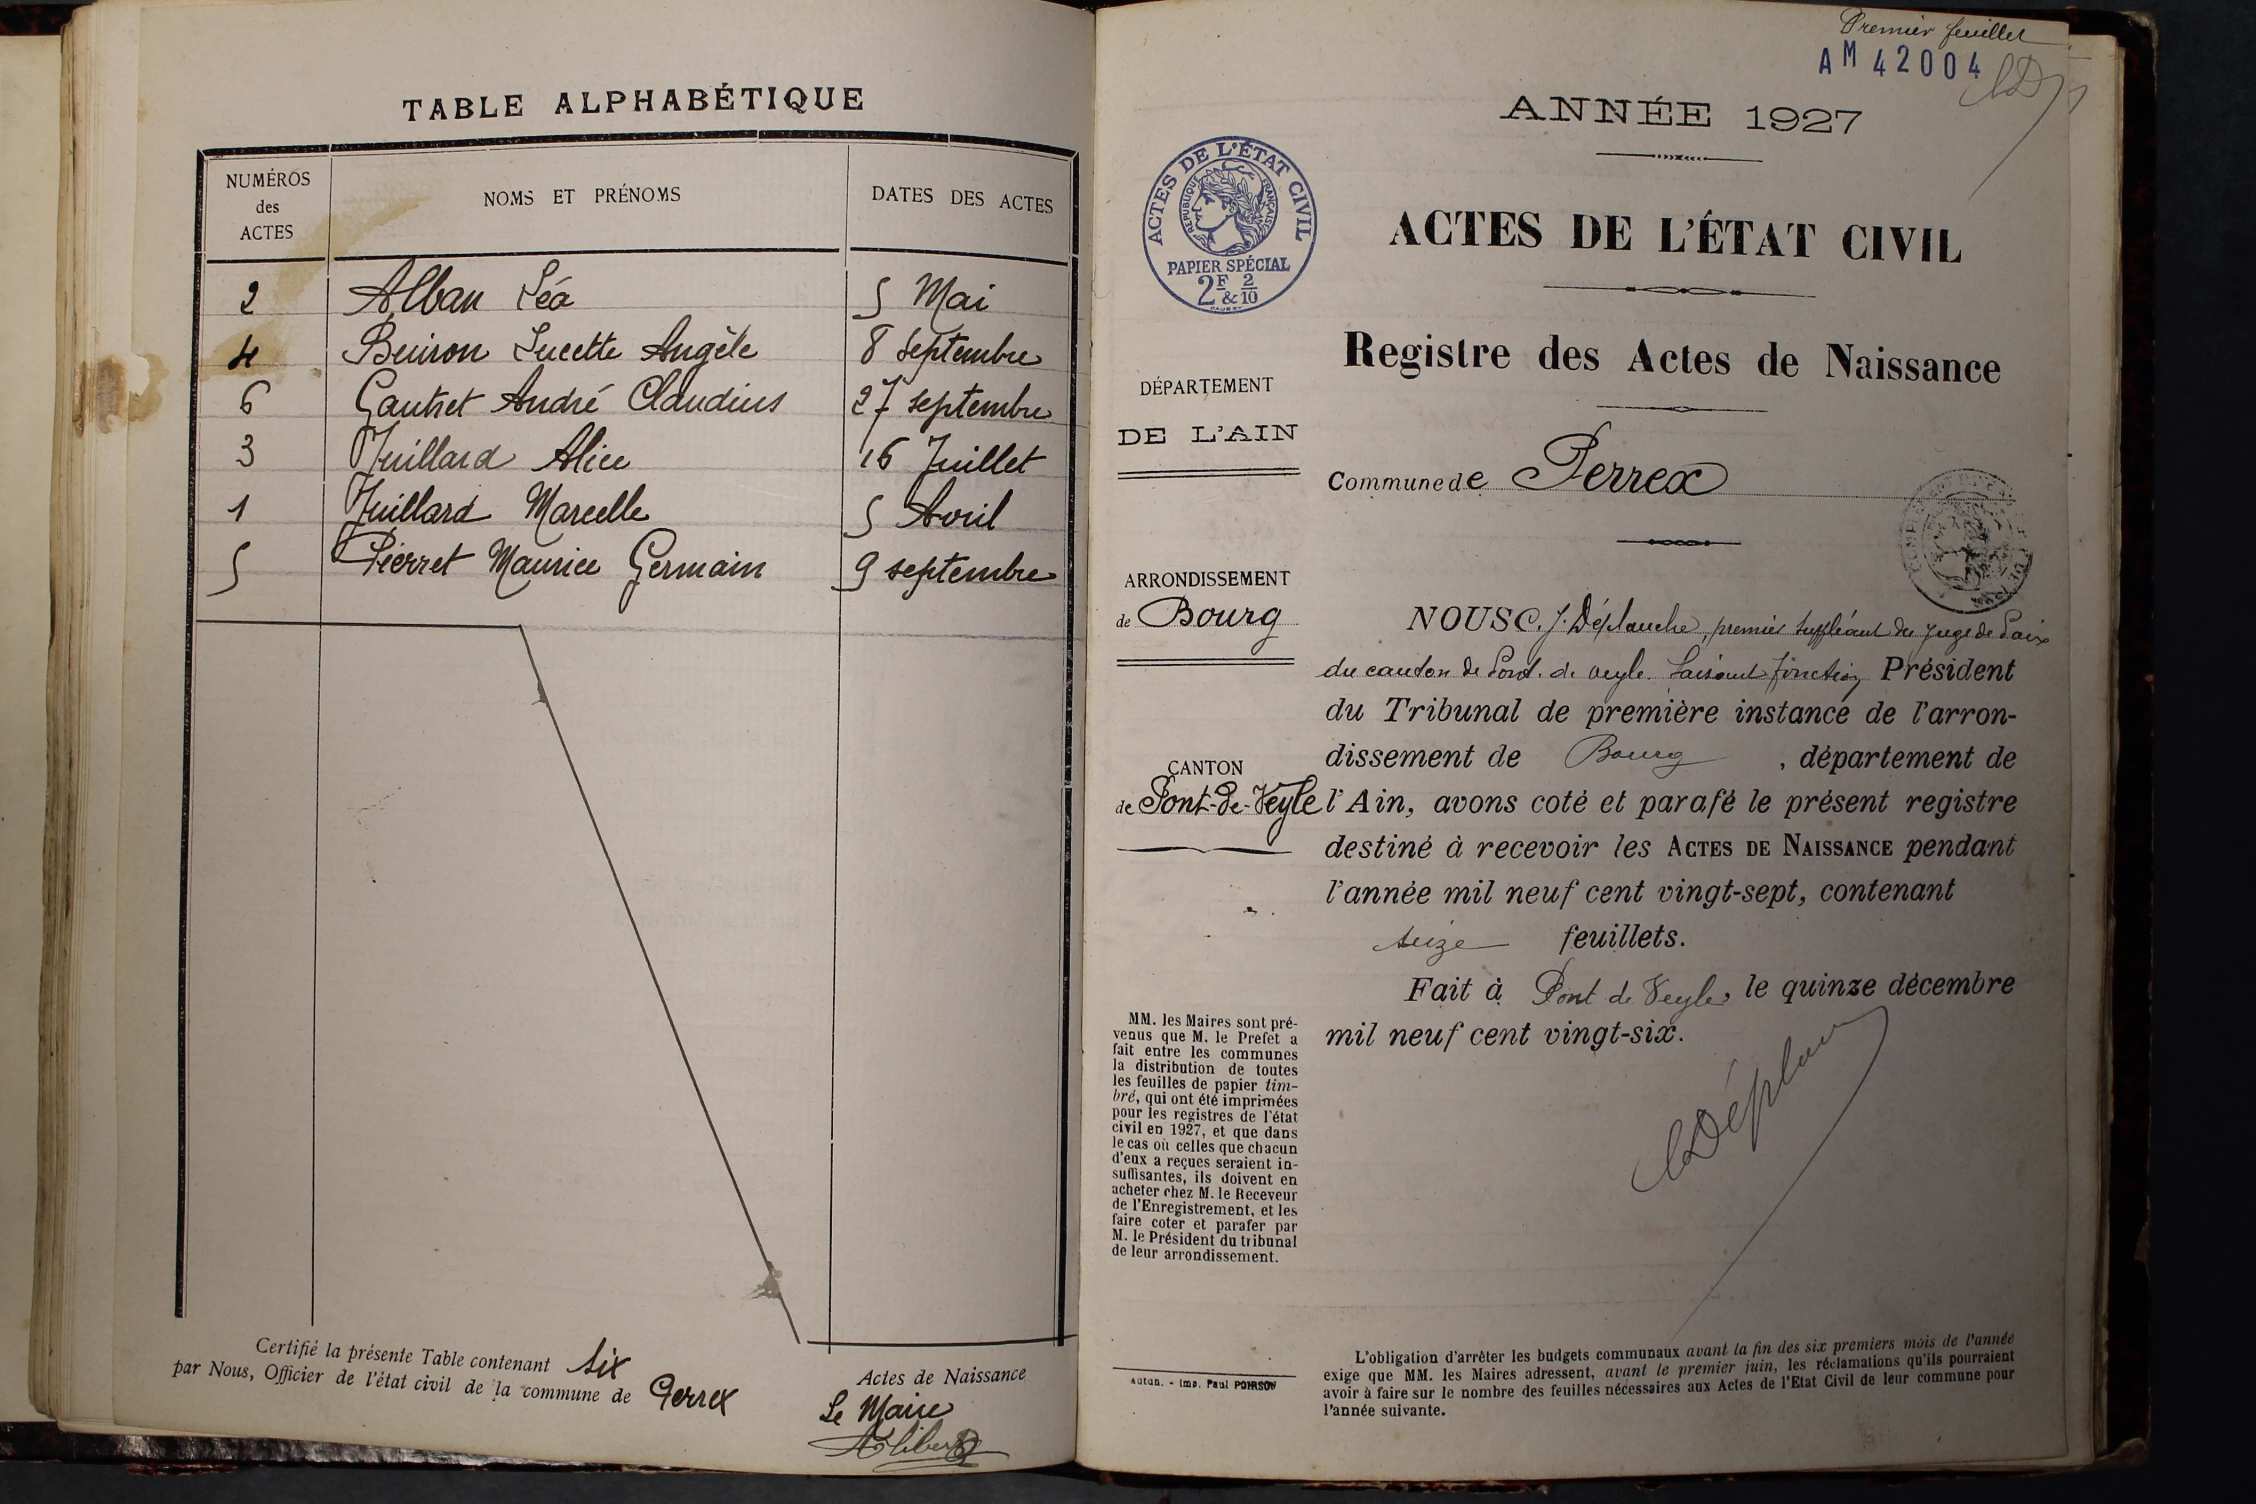 TABLE ALPHABÉTIQUE
NUMÉROS
des
ACTES
NOMS ET PRÉNOMS
DATES DES ACTES
2 Alban Léa 5 Mai
4 Buiron Lucette Angèle 8 septembre
6 Gautret André Claudius 27 septembre
3 Juillard Alice 16 Juillet
1 Juillard Marcelle 5 Avril
5 Pierret Maurice Germain 9 septembre
Certifié la présente Table contenant six Actes de Naissance
par Nous, Officier de l'état civil de la commune de Perrex
Le Maire
Premier feuillet
AM 42004
ANNÉE 1927
ACTES DE L'ÉTAT CIVIL
RÉPUBLIQUE FRANÇAISE
PAPIER SPÉCIAL
2F & 2/10
ACTES DE L'ÉTAT CIVIL
Registre des Actes de Naissance
DÉPARTEMENT
DE L'AIN
Commune de Perrex
ARRONDISSEMENT
de Bourg
CANTON
de Pont-de-Veyle
NOUS C. J. Déplanche, premier suppléant du juge de Paix
du canton de Pont. de veyle. faisant fonction Président
du Tribunal de première instance de l'arron-
dissement de Bourg, département de
l'Ain, avons coté et parafé le présent registre
destiné à recevoir les ACTES DE NAISSANCE pendant
l'année mil neuf cent vingt-sept, contenant
seize feuillets.
Fait à Pont de Veyle, le quinze décembre
mil neuf cent vingt-six.
MM. les Maires sont pré-
venus que M. le Prefet a
fait entre les communes
la distribution de toutes
les feuilles de papier tim-
bré, qui ont été imprimées
pour les registres de l'état
civil en 1927, et que dans
le cas où celles que chacun
d'eux a reçues seraient in-
suffisantes, ils doivent en
acheter chez M. le Receveur
de l'Enregistrement, et les
faire coter et parafer par
M. le Président du tribunal
de leur arrondissement.
Autun. - Imp. Paul POIRSON
L'obligation d'arrêter les budgets communaux avant la fin des six premiers mois de l'année
exige que MM. les Maires adressent, avant le premier juin, les réclamations qu'ils pourraient
avoir à faire sur le nombre des feuilles nécessaires aux Actes de l'Etat Civil de leur commune pour
l'année suivante.